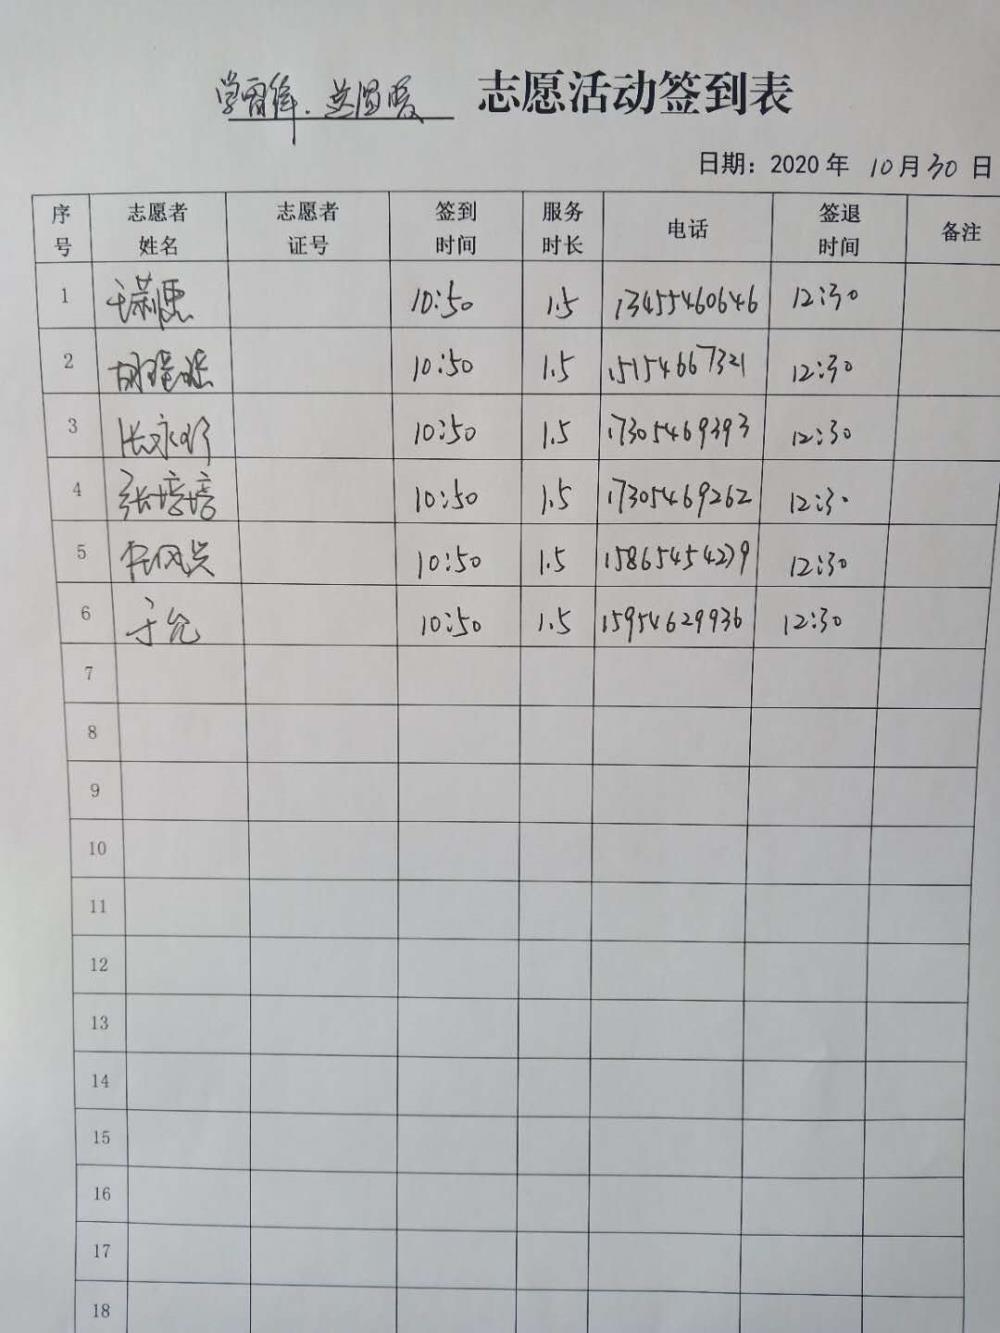 学雷锋.送温暖 志愿活动签到表
日期：2020年 10月30日
序号 志愿者姓名 志愿者证号 签到时间 服务时长 电话 签退时间 备注
1 10:50 1.5 13455460646 12:30
2 10:50 1.5 15154667321 12:30
3 10:50 1.5 17305469393 12:30
4 张培培 10:50 1.5 17305469262 12:30
5 10:50 1.5 15865454279 12:30
6 于允 10:50 1.5 15954629936 12:30
7
8
9
10
11
12
13
14
15
16
17
18